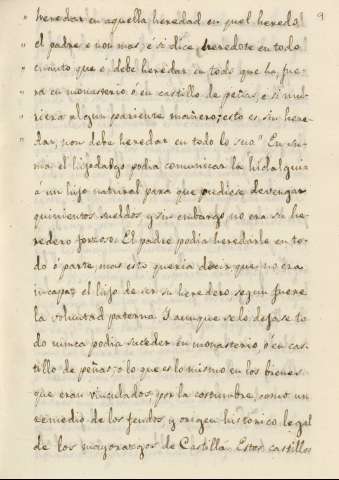 9
" heredar en aquella heredad en quel heredó
" el padre e non mas, e si dice, heredote en todo
" cuanto que ó debe heredar en todo que ha, fue-
" ra en monasterio ó en castillo de peñas, e si mu-
" riera algun pariente mañero, esto es, sin here-
" dar, non debe heredar en todo lo suo." En su-
ma el hijodalgo podia comunicar la hidalguia
a un hijo natural para que pudiese devengar
quinientos sueldos, y sin embargo no era su he-
redero forzoso. El padre podia heredarle en to-
do ó parte, mas esto queria decir que no era
incapaz el hijo de ser su heredero, segun fuere
la voluntad paterna. Y aunque se le dejase to-
do nunca podia suceder en monasterio, ó en cas-
tillo de peñas, o lo que es lo mismo en los bienes
que eran vinculados por la costumbre, como un
remedio de los feudos, y origen historico legal
de los mayorazgos de Castilla. Estos castillos